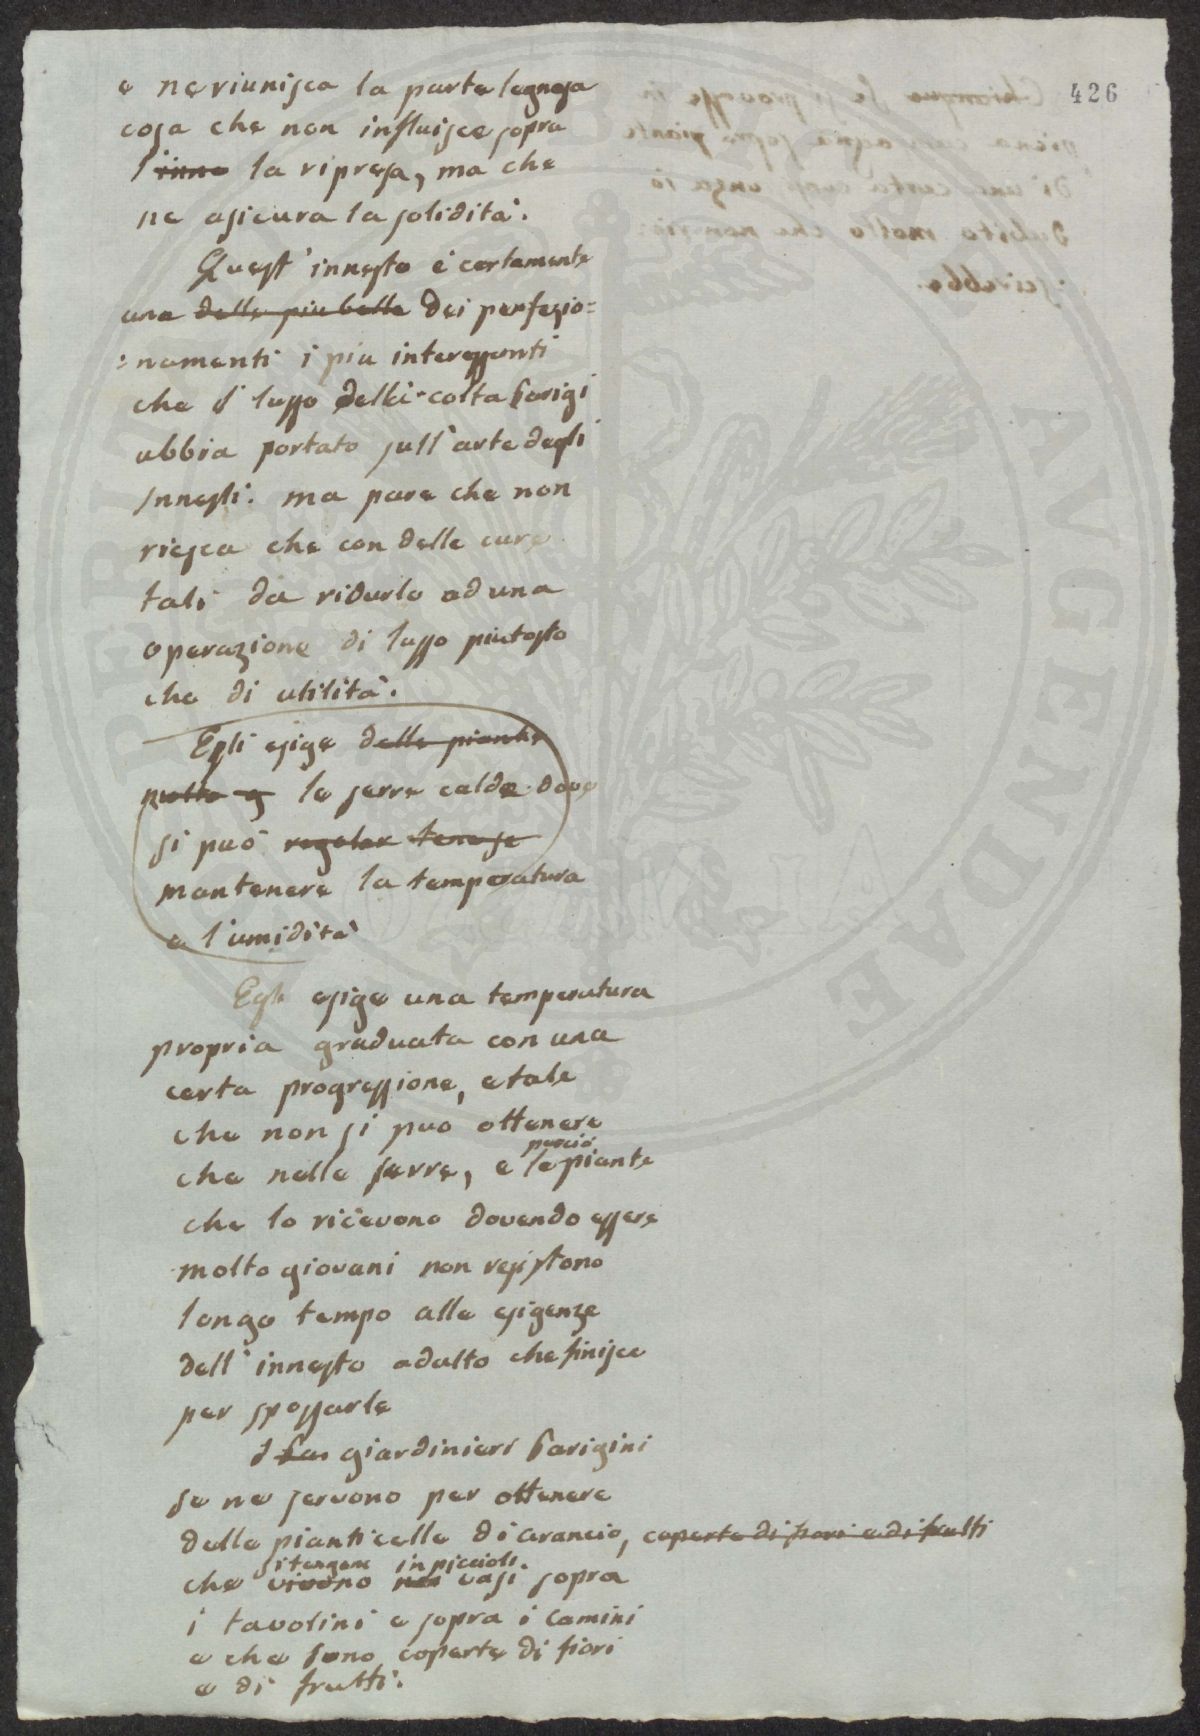 426
e ne riunisca la parte legnosa
cosa che non influisce sopra
l'inne la ripresa, ma che
ne asicura la solidità.
Quest' innesto è certamente
una delle piu belle dei perfezio=
=namenti i piu interessanti
che il lusso della colta Parigi
abbia portato sull'arte degli
Innesti. ma pare che non
riesca che con delle cure
tali da ridurlo ad una
operazione di lusso piutosto
che di utilità.
Egli esige delle piante
molto g le serre calde dove
si può regolar tenese
mantenere la temperatura
e l'umidità
Egli esige una temperatura
propria graduata con una
certa progressione, e tale
che non si può ottenere
che nelle serre, e perciò le piante
che lo ricevono dovendo essere
molto giovani non resistono
longo tempo alle esigenze
dell'innesto adulto che finisce
per spossarle
I giardinieri Parigini
se ne servono per ottenere
delle pianticelle di arancio, coperte di fiori e di frutti
si tengono in piccioli
che vivono vasi sopra
i tavolini e sopra i camini
e che sono coperte di fiori
e di frutti.
PERPETUO
AVGENDAE
OMNIA